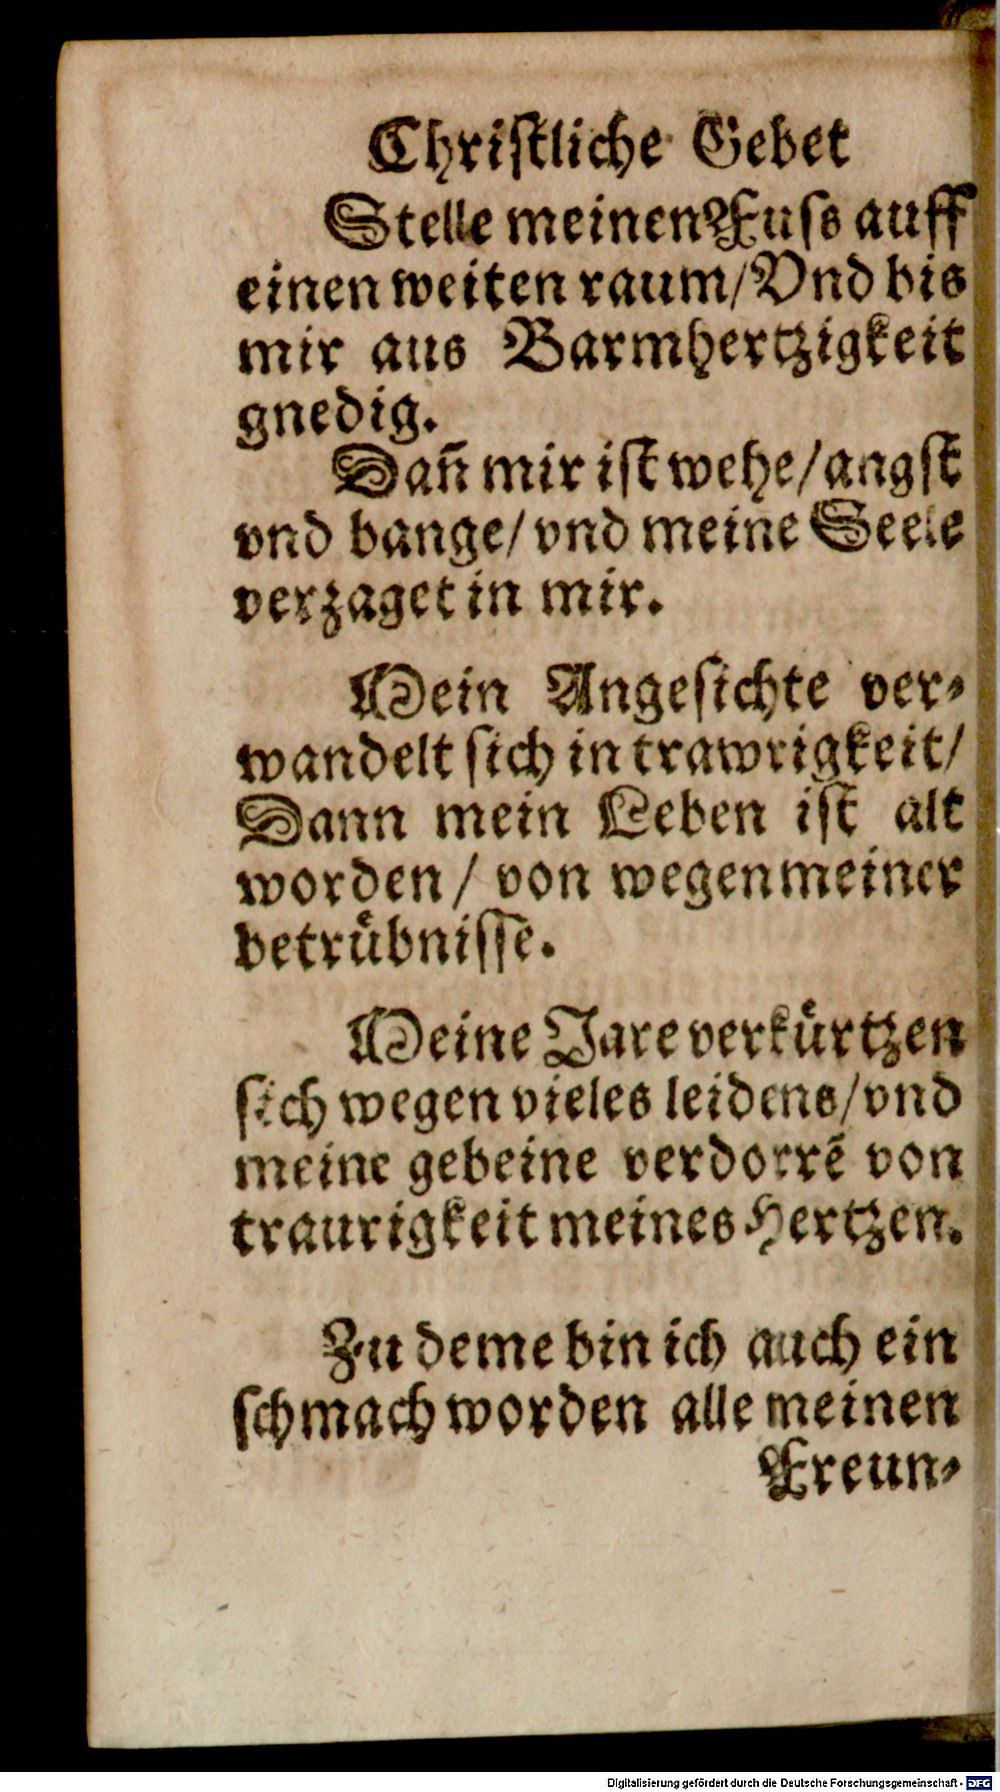 Christliche Gebet
Stelle meinen Fuss auff
einen weiten raum/Vnd bis
mir aus Barmhertzigkeit
gnedig.
Dañ mir ist wehe/angst
vnd bange/vnd meine Seele
verzaget in mir.
Mein Angesichte ver-
wandelt sich in trawrigkeit/
Dann mein Leben ist alt
worden/ von wegen meiner
betruͤbnisse.
Meine Jare verkuͤrtzen
sich wegen vieles leidens/vnd
meine gebeine verdorrẽ von
traurigkeit meines Hertzen.
Zu deme bin ich auch ein
schmach worden alle meinen
Freun-
Digitalisierung gefördert durch die Deutsche Forschungsgemeinschaft - DFG